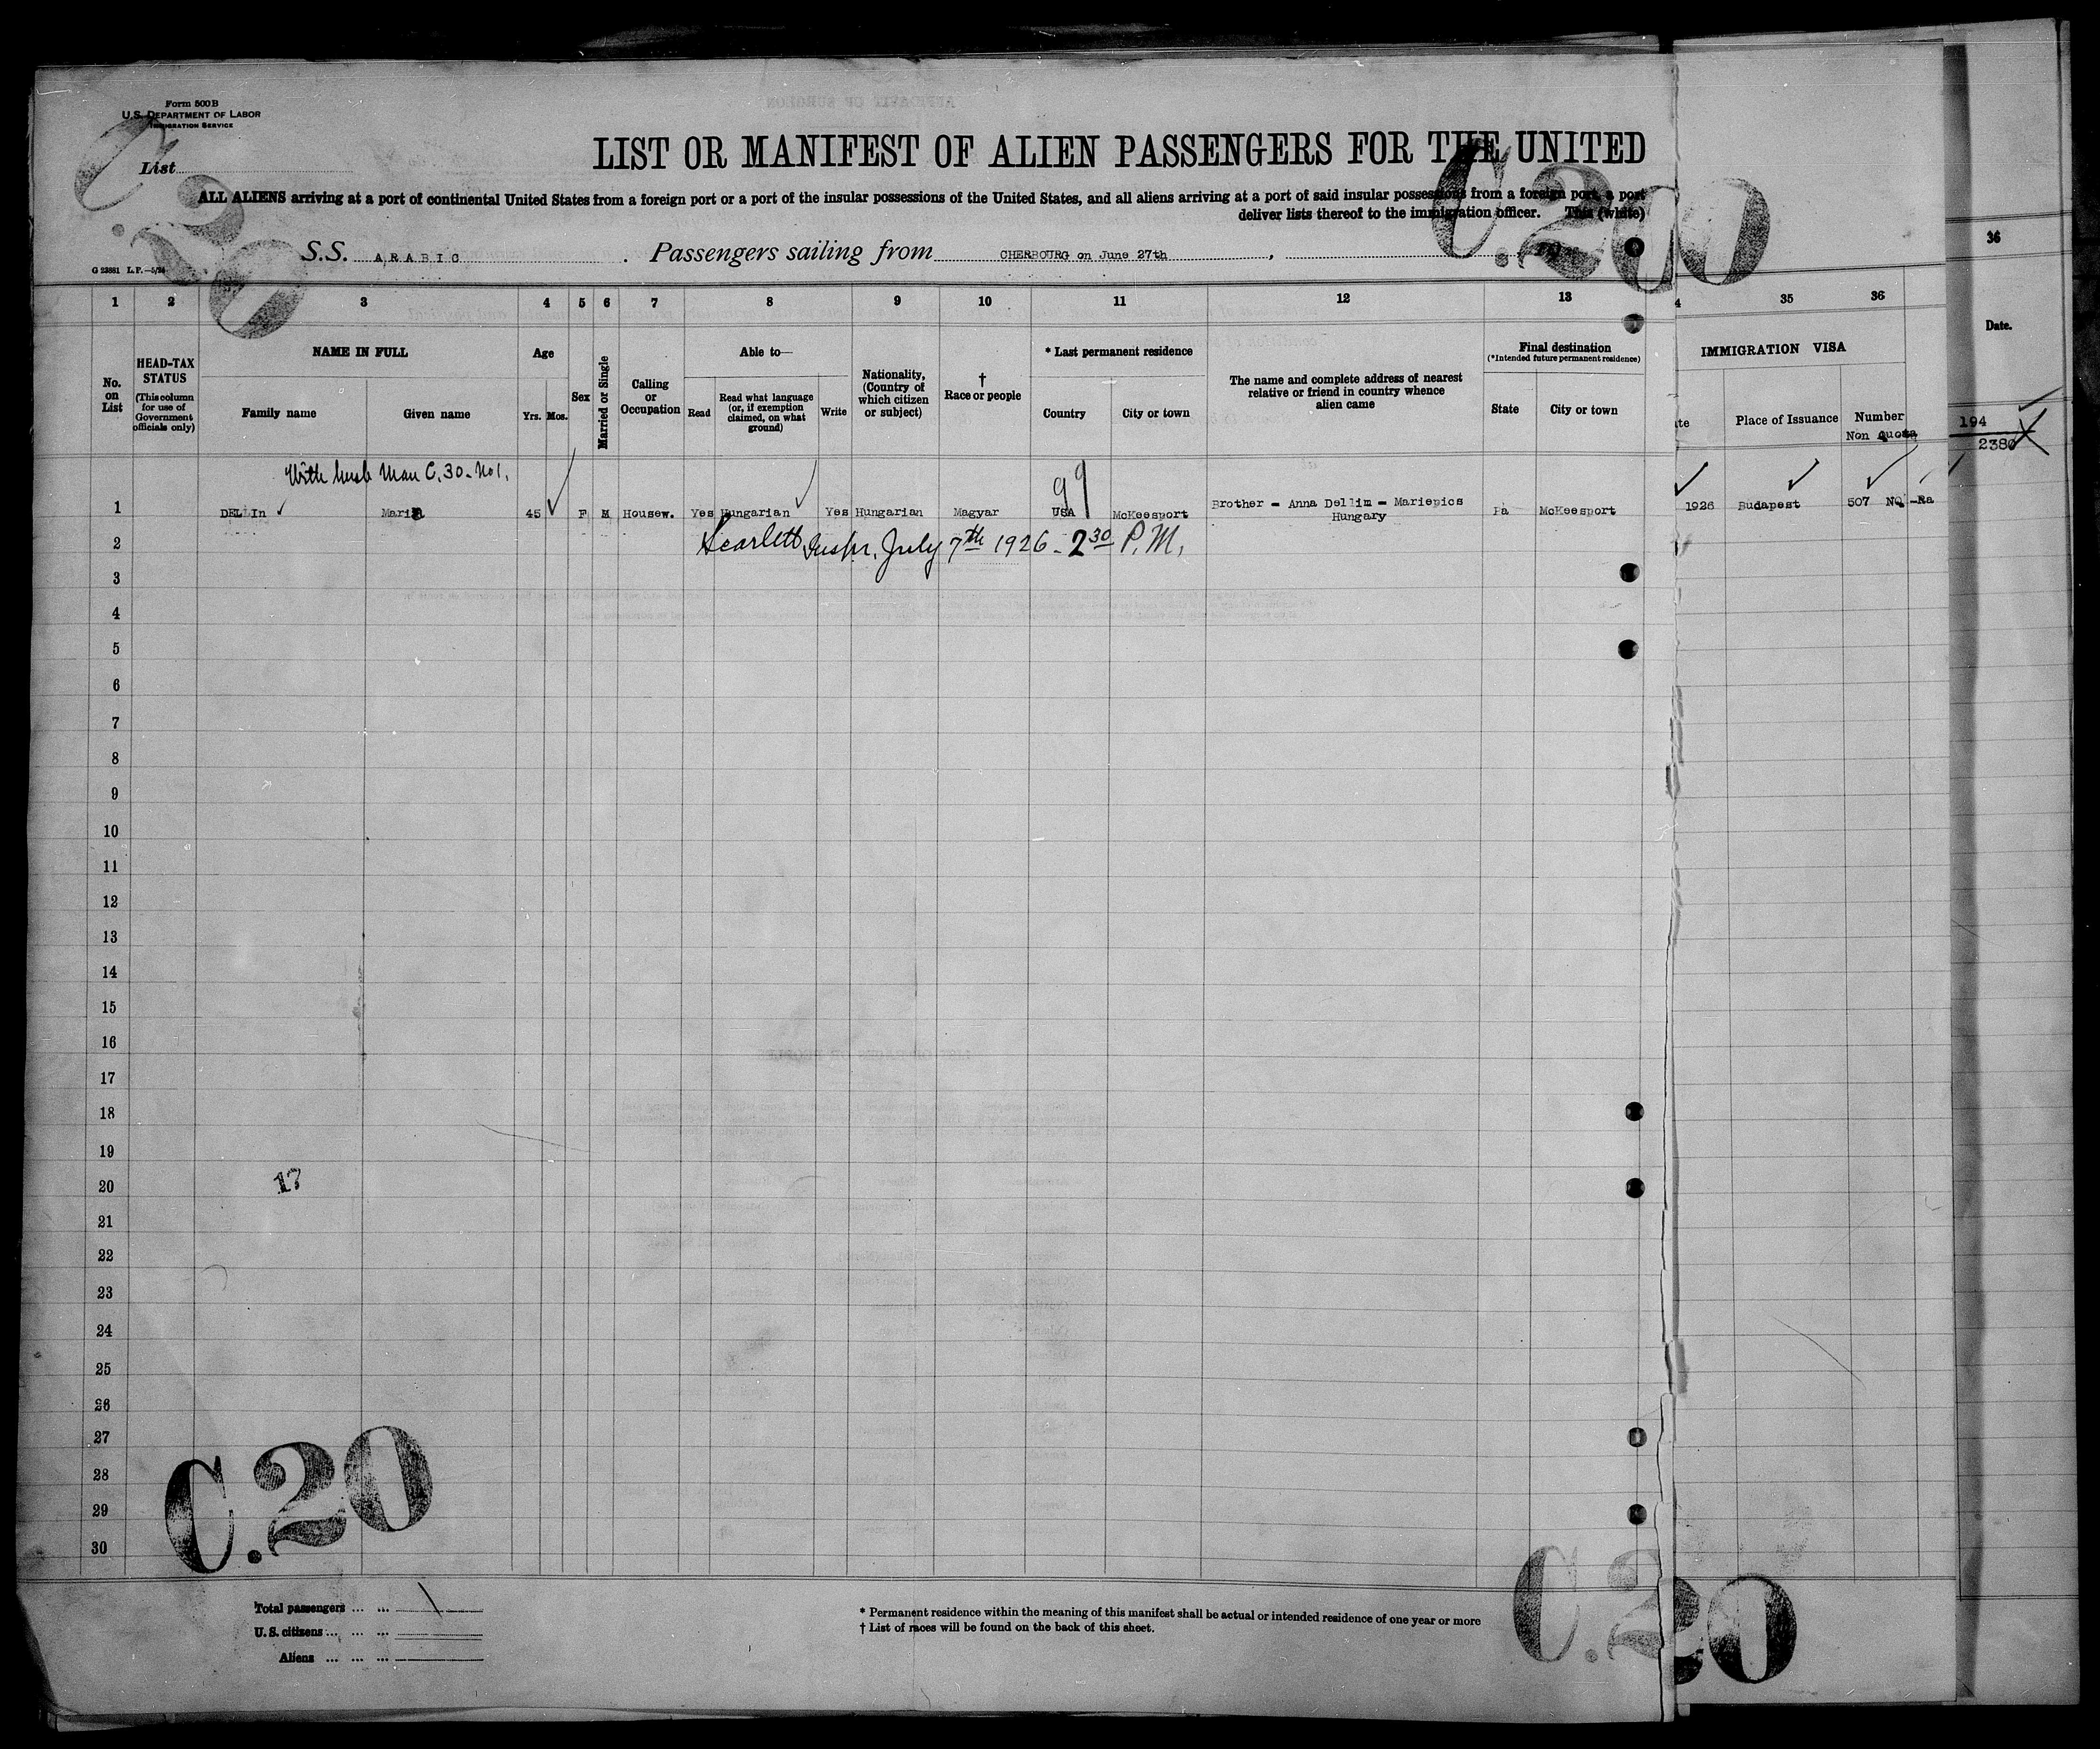 Form 500B
U.S. DEPARTMENT OF LABOR
IMMIGRATION SERVICE
List
C.20
LIST OR MANIFEST OF ALIEN PASSENGERS FOR THE UNITED
C.200
ALL ALIENS arriving at a port of continental United States from a foreign port or a port of the insular possessions of the United States, and all aliens arriving at a port of said insular possessions from a foreign port, a port
deliver lists thereof to the immigration officer. This (white)
S.S. ARABIC . Passengers sailing from CHERBOURG on June 27th ,
G 23881 L.P.—5/24
36
1 2 3 4 5 6 7 8 9 10 11 12 13 4 35 36
Date.
No. on List
HEAD-TAX STATUS (This column for use of Government officials only)
NAME IN FULL
Family name Given name
Age
Yrs. Mos.
Sex
Married or Single
Calling or Occupation
Able to—
Read
Read what language (or, if exemption claimed, on what ground)
Write
Nationality, (Country of which citizen or subject)
† Race or people
* Last permanent residence
Country City or town
The name and complete address of nearest relative or friend in country whence alien came
Final destination
(*Intended future permanent residence)
State City or town
IMMIGRATION VISA
te Place of Issuance Number
Non Quota
194
2380
With husb Man C.30-No1.
99
1 DELLIn Maria 45 F M Housew. Yes Hungarian Yes Hungarian Magyar USA McKeesport Brother - Anna Dellim - Mariepics Hungary Pa McKeesport 1926 Budapest 507 NQ -Ra
2 Scarlett, Inspr. July 7th 1926 - 2 30 P.M.
3
4
5
6
7
8
9
10
11
12
13
14
15
16
17
18
19
20 17
21
22
23
24
25
26
27
28
29
30
C.20
C.20
20
Total passengers ... ... \
U.S. citizens ... ... ...
Aliens ... ... ...
* Permanent residence within the meaning of this manifest shall be actual or intended residence of one year or more
† List of races will be found on the back of this sheet.